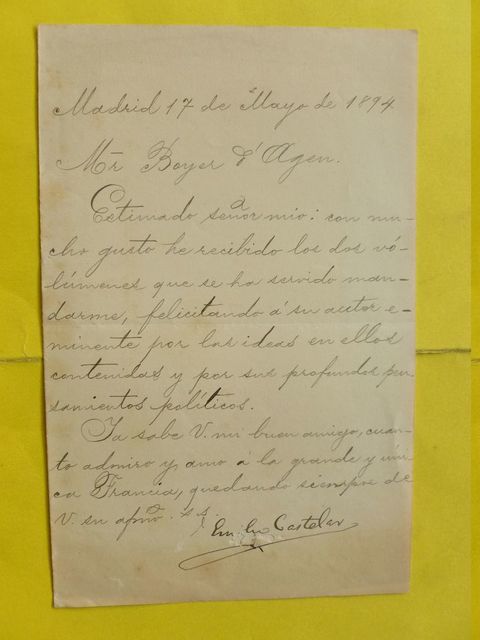 Madrid 17 de Mayo de 1894.
Mr Boyer d'Agen.
Estimado señor mio: con mu-
cho gusto he recibido los dos vó-
lúmenes que se ha servido man-
darme, felicitando á su autor e-
minente por las ideas en ellos
contenidas y por sus profundos pen-
samientos políticos.
Ya sabe V. mi buen amigo, cuan-
to admiro y amo á la grande y úni-
ca Francia, quedando siempre de
V. su afmo. s.s.
Emilio Castelar